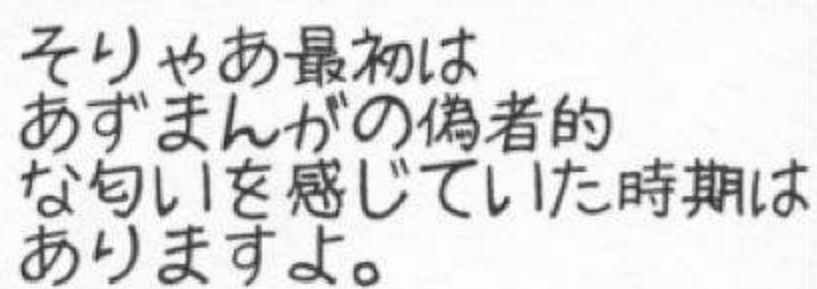 そりゃあ最初は
あずまんがの偽者的
な匂いを感じていた時期は
ありますよ。